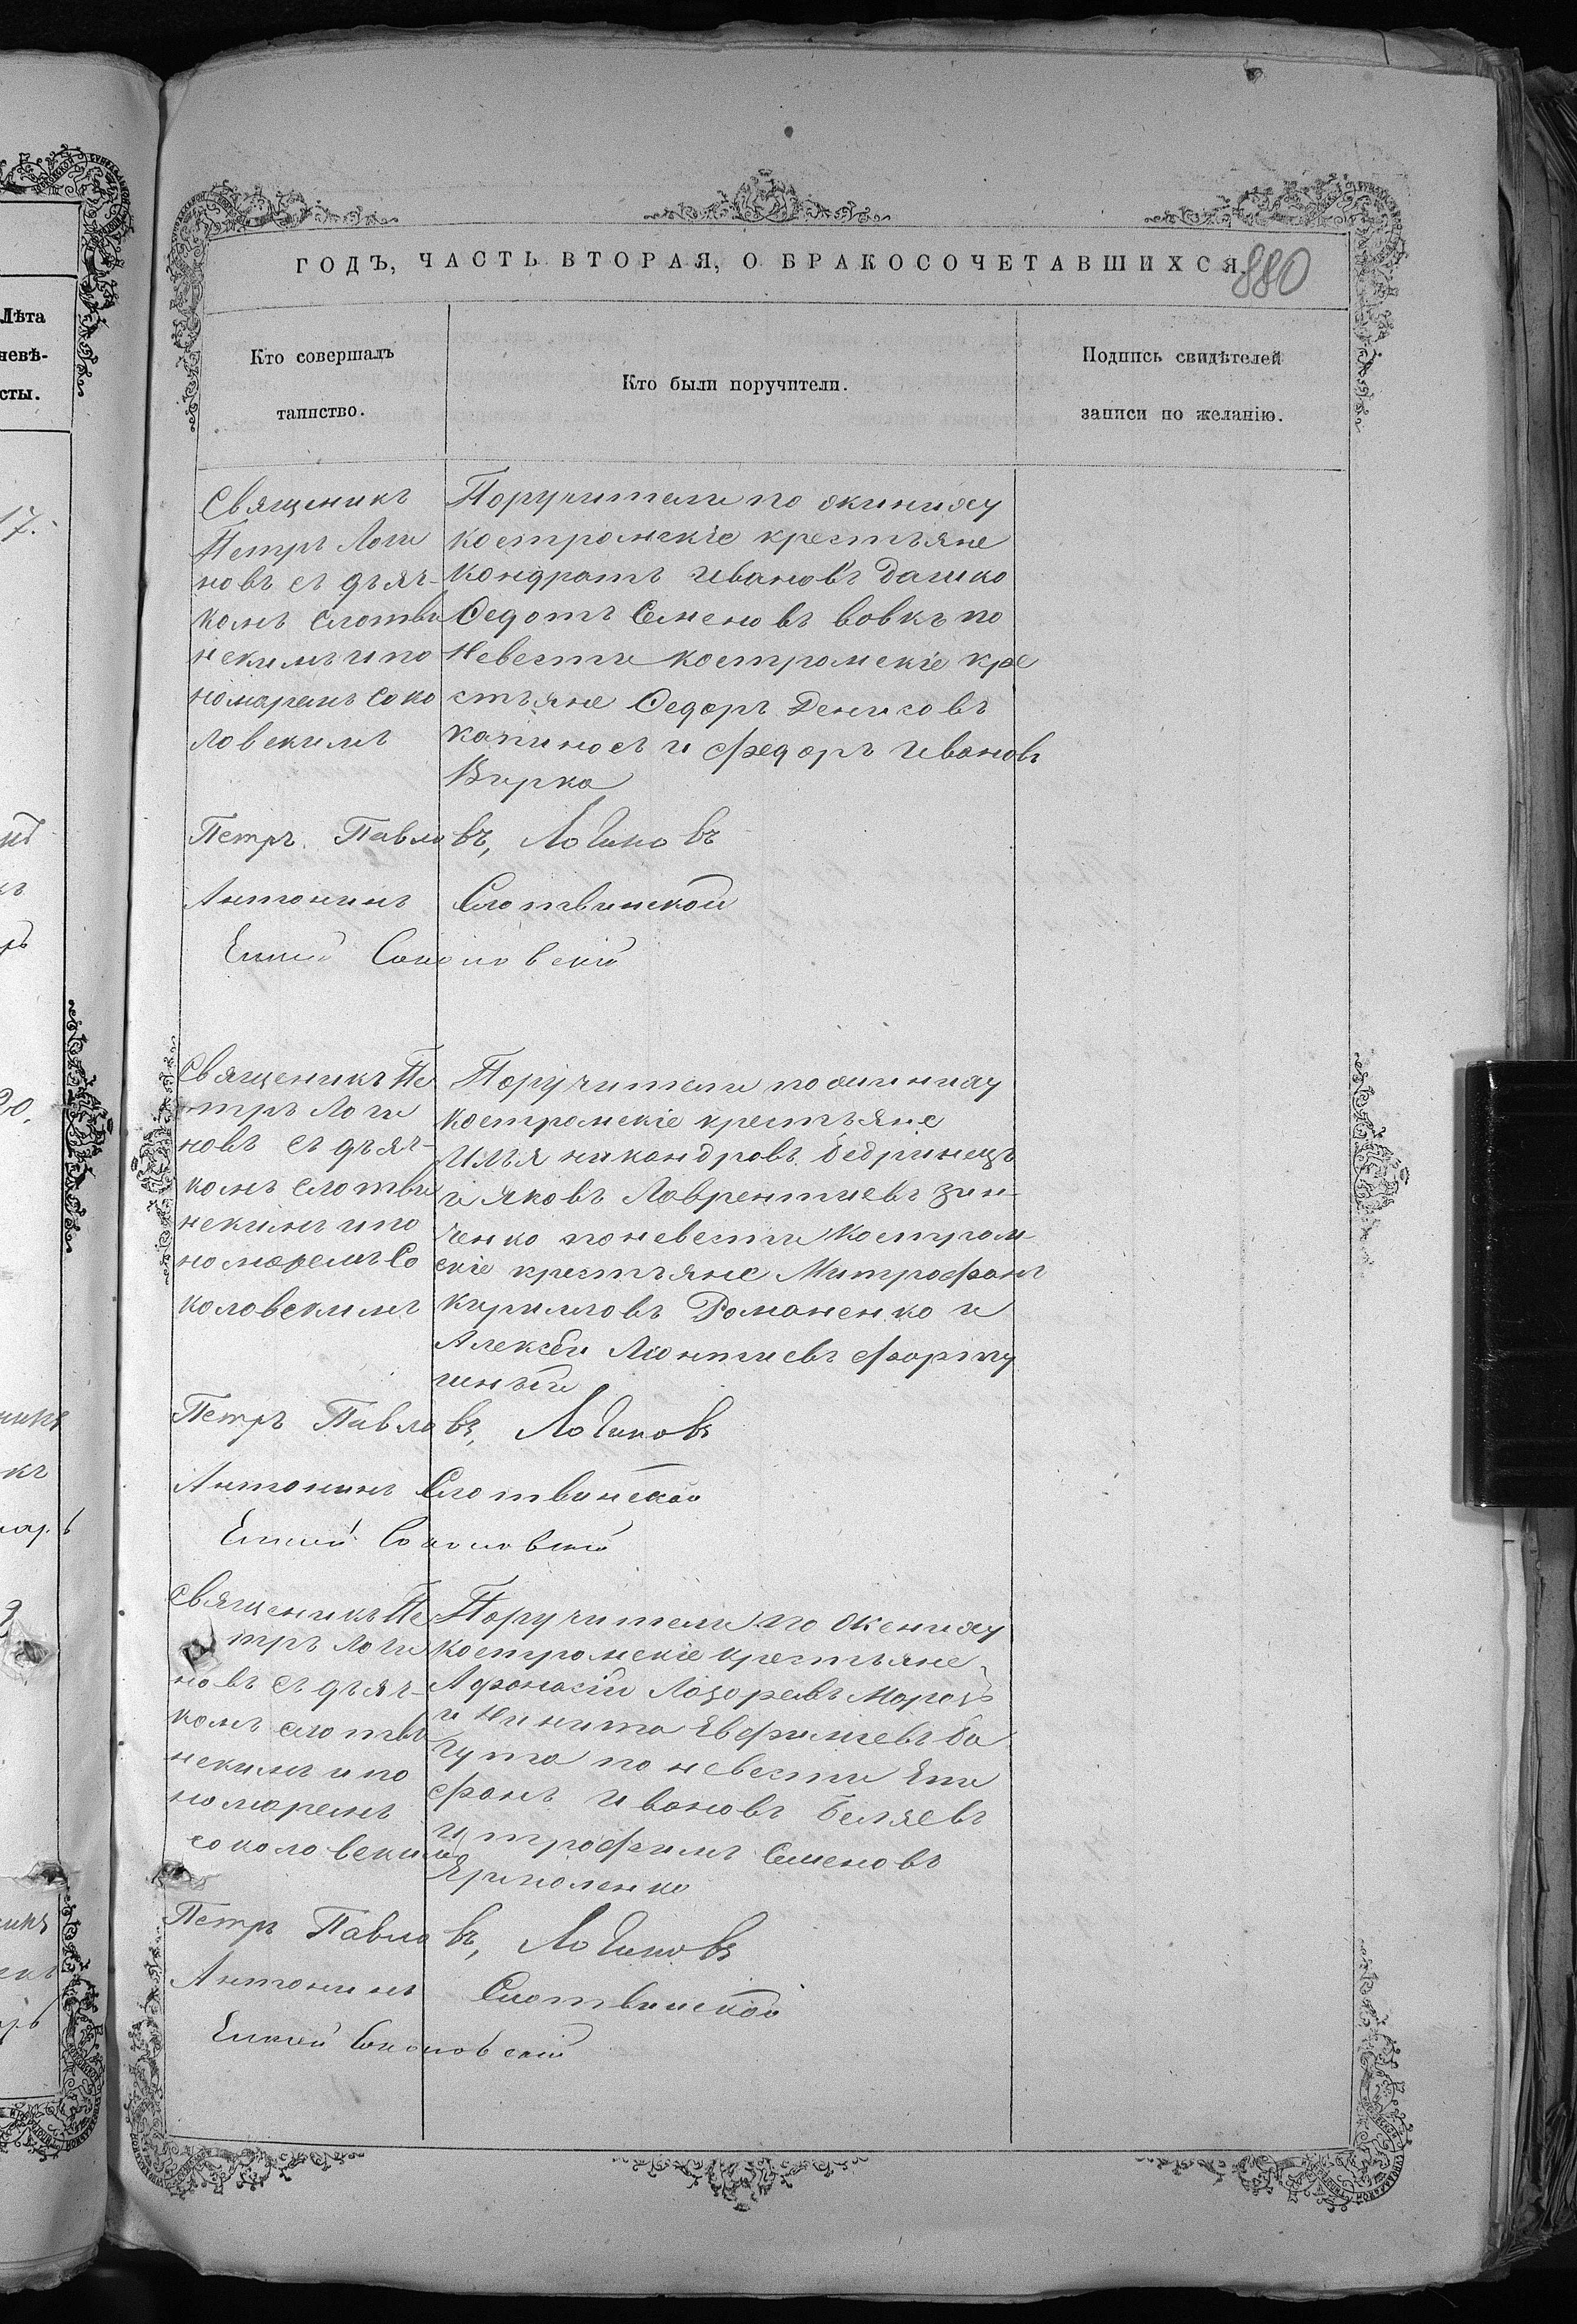 ГОДЪ, ЧАСТЬ ВТОРАЯ, О БРАКОСОЧЕТАВШИХСЯ.
880
Лѣта
невѣ-
сты.
Кто совершалъ
таинство.
Кто были поручители.
Подпись свидѣтелей
записи по желанію.
17.
20.
Священикъ
Петръ Логи
новъ съ дьяч-
комъ Слотви
нскимъ и по
номаремъ Соко
ловскимъ
Поручители по жениху
костромскіе крестьяне
Кондратъ Ивановъ Дашко
Федотъ Семеновъ Вовкъ по
невести костромскіе кре
стьяне Федоръ Денисовъ
Капиносъ и Федоръ Ивановъ
Вирка
Петръ Павловъ, Логиновъ
Антонинъ Слотвинской
Соколовскій
Священикъ Пе
тръ Логи
новъ съ дьяч-
комъ Слотви
нскимъ и по
номаремъ Со
коловскимъ
Поручители по жениху
костромскіе крестьяне
Илья Никандровъ Бедринецъ
и Яковъ Лаврентиевъ Зин-
ченко по невести костром
скіе крестьяне Митрофанъ
Кириловъ Романенко и
Алексѣй Леонтиевъ Форту
Петръ Павловъ, Логиновъ
Антонинъ Слотвинской
Соколовскій
Священикъ Пе
тръ Логи
новъ съ дьяч-
комъ Слотви
нскимъ и по
номаремъ
Соколовскимъ
Поручители по жениху
костромскіе крестьяне
Афонасій Лазоревъ Морозъ
и Никита Евфимиевъ Ба
гута по невести Епи
фанъ Ивановъ Беляевъ
и Трофимъ Семеновъ
Ярмоленко
Петръ Павловъ, Логиновъ
Антонинъ Слотвинской
Соколовскій